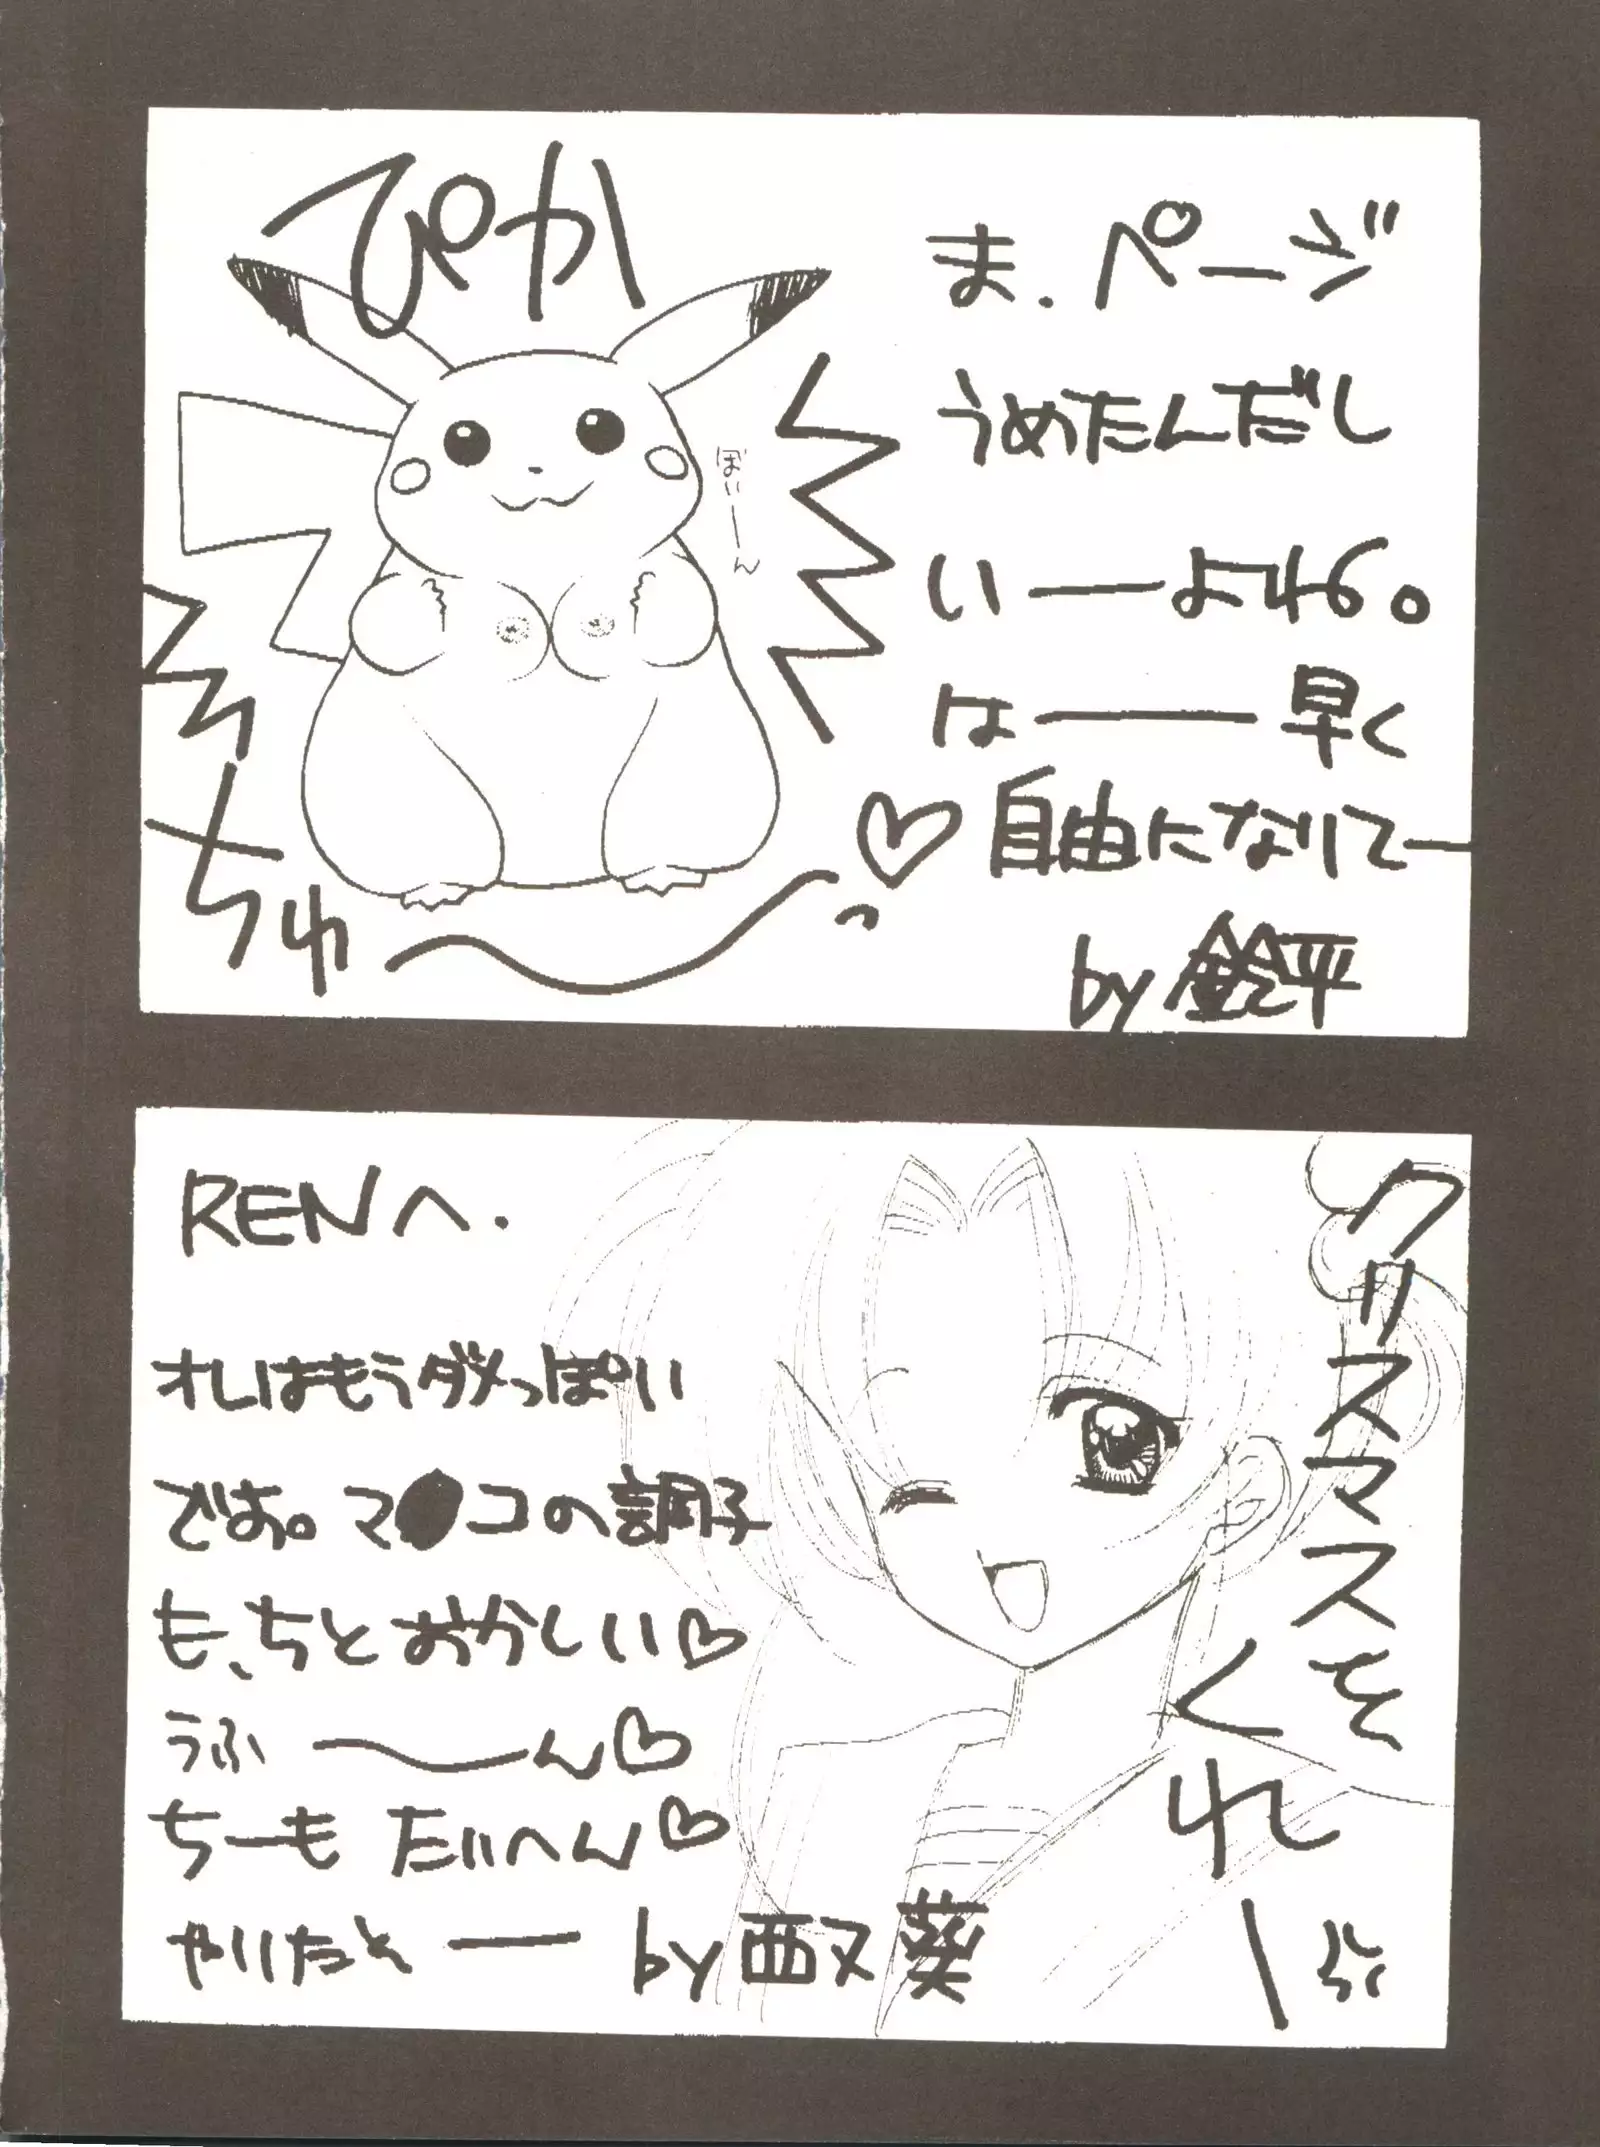 ぴか
ちゅ
ぼいーん
ま、ページ
うめたんだし
いーよね。
はー早く
自由になりてー
by 鈴平
RENへ.
オレはもうダメっぽい
です。マ●コの調子
も、ちとおかしい♡
うふ〜ん♡
ちーも たいへん♡
やりたとー
by 西又 葵
クリスマスを
くれー